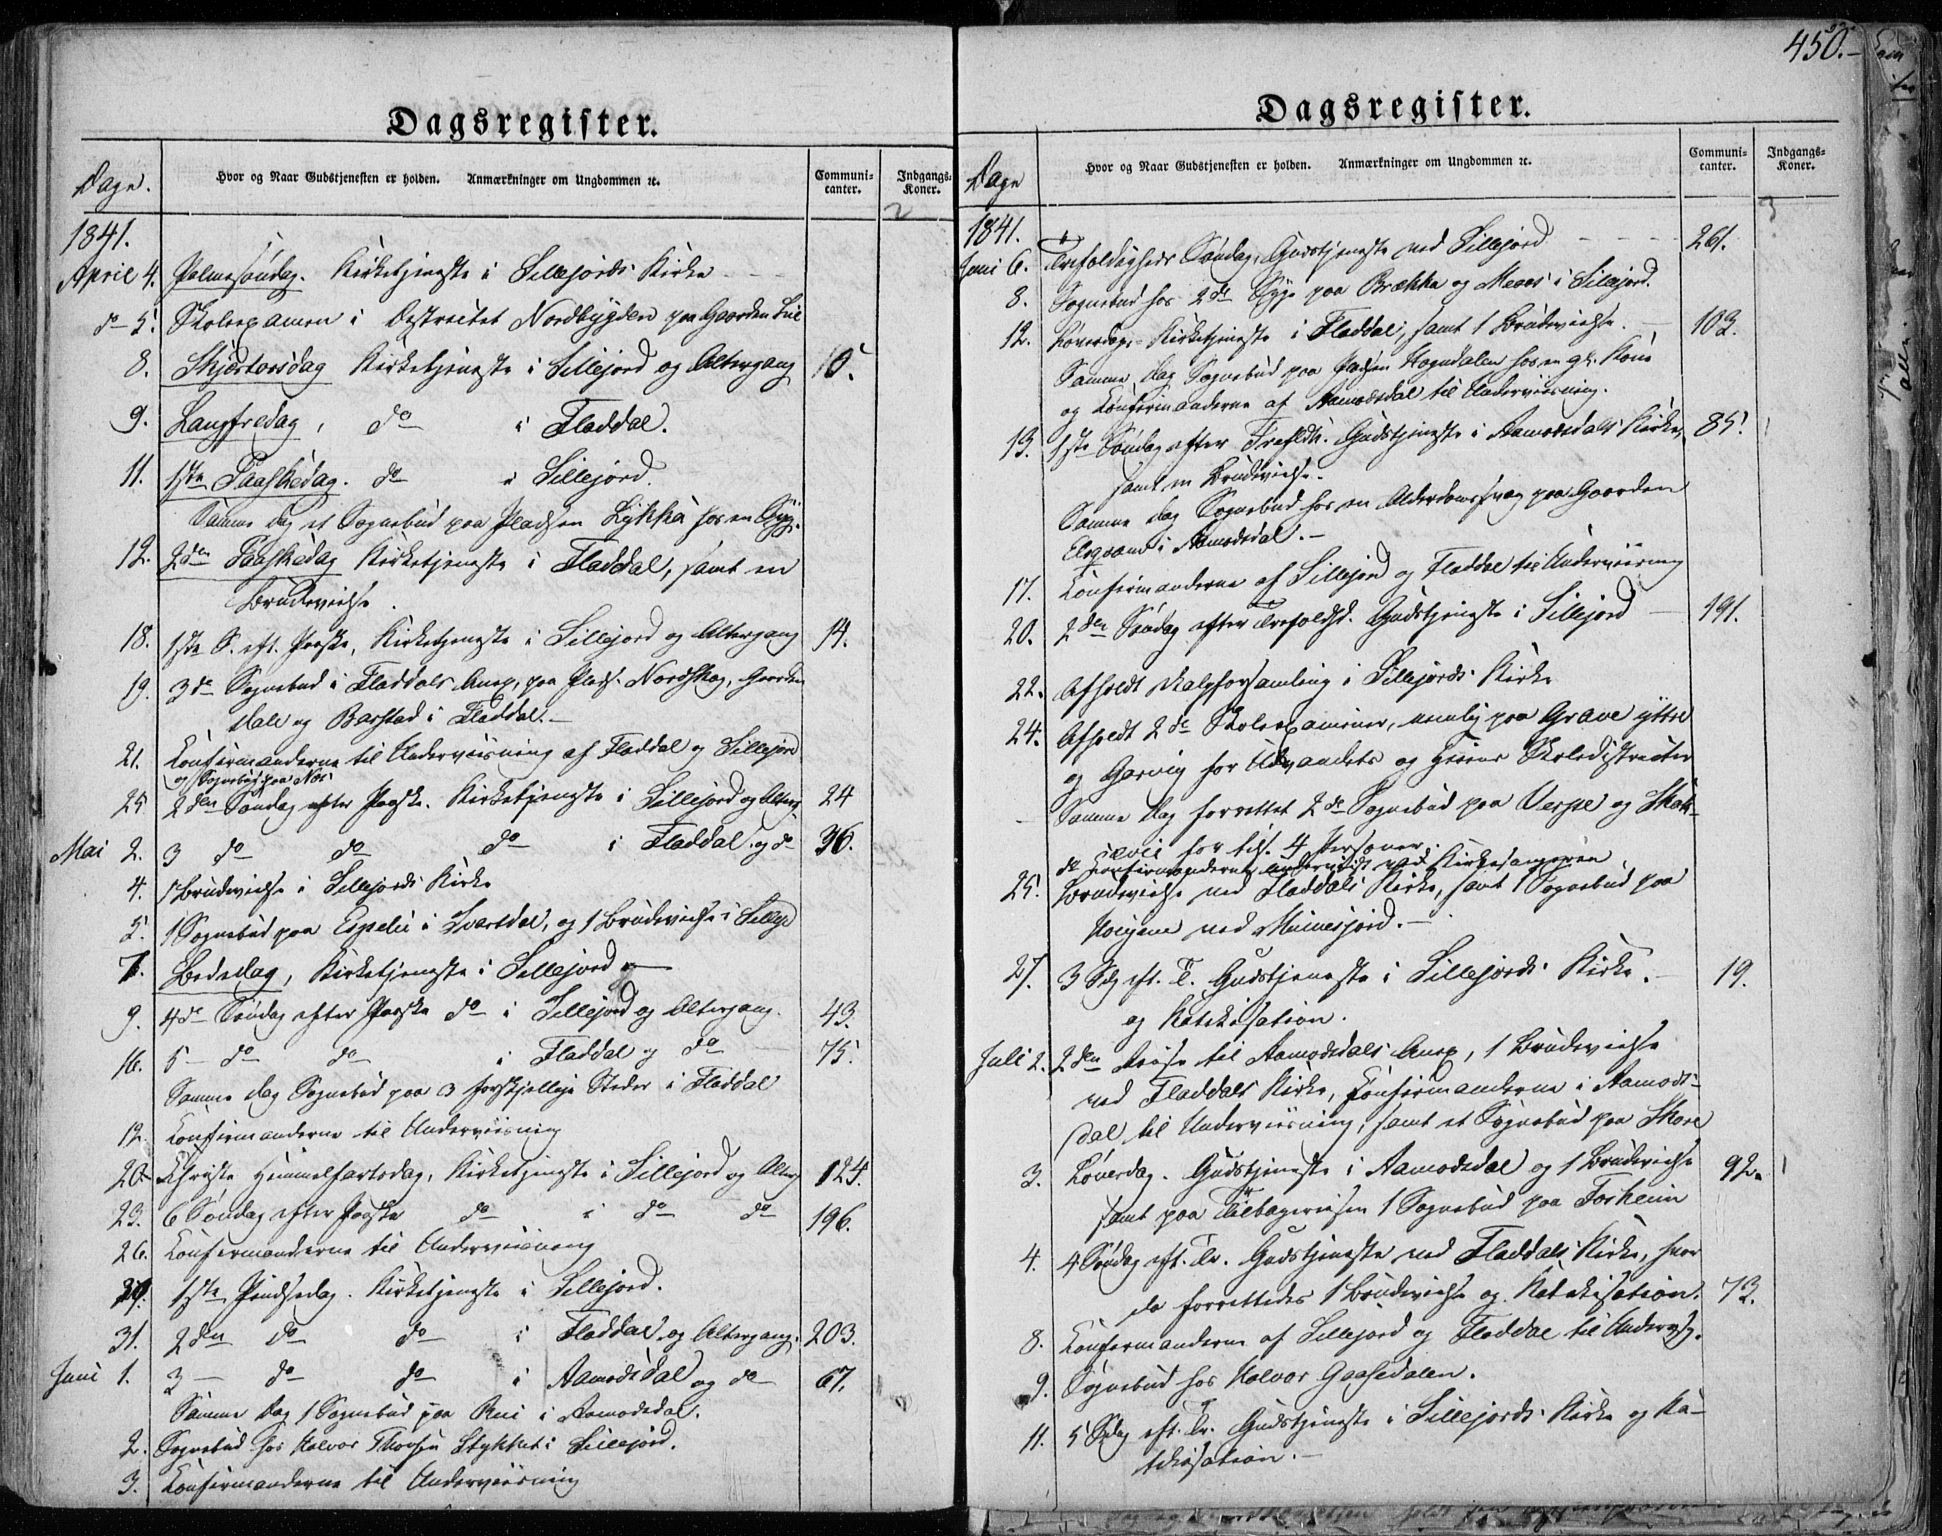 Dagsregister.
Dage.
Hvor og Naar Gudstjenesten er holden. Anmærkninger om Ungdommen ꝛc.
Communi-
canter.
Indgangs-
Koner.
2
1841.
April 4. Palmesøndag. Kirketjeneste i Sillejords Kirke
do 5. Skoleexamen i Districtet Nordbygden paa Gaarden Lie
8. Skjærtorsdag Kirketjeneste i Sillejord og Altergang 10.
9. Langfredag, do i Fladdal.
11. 1ste Paaskedag. do i Sillejord.
Samme Dag et Sognebud paa Pladsen Lykkja hos en Syg.
12. 2den Paaskedag Kirketjeneste i Fladdal, samt en
Brudevielse.
18. 1ste S. eft. Paaske, Kirketjeneste i Sillejord og Altergang 14.
19. 3de Sognebud i Fladdals Anex, paa Plads. Nordskog, Gaarden
Dale og Barstad i Fladdal.
21. Konfirmanderne til Underviisning af Fladdal og Sillejord
og Sognebud paa Næs
25 2den Søndag efter Paaske. Kirketjeneste i Sillejord og Alterg. 24
Mai 2. 3 do do do i Fladdal og do 36.
4. 1 Brudevielse i Sillejords Kirke
5. 1 Sognebud paa Espelie i Svartdal, og 1 Brudevielse i Sillejd
7. Bededag, Kirketjeneste i Sillejord
9. 4de Søndag efter Paaske do i Sillejord og Altergang. 43.
16. 5 do do i Fladdal og do 75.
Samme Dag Sognebud paa 3 forskjellige Steder i Fladdal
12. Konfirmanderne til Underviisning
20. Christi Himmelfartsdag, Kirketjeneste i Sillejord og Alterg 124.
23. 6 Søndag efter Paaske do i do do 196.
26. Konfirmanderne til Underviisning
30. 1ste Pindsedag. Kirketjeneste i Sillejord.
31. 2den do do i Fladdal og Altergang. 203.
Juni 1. 3 do do i Aamodsdal og do 67.
Samme Dag 1 Sognebud paa Rui i Aamodsdal.
2. Sognebud hos Halvor Thorsen Stykket i Sillejord.
3. Konfirmanderne til Underviisning
450.
Dagsregister.
Dage
Hvor og Naar Gudstjenesten er holden. Anmærkninger om Ungdommen ꝛc.
Communi-
canter.
Indgangs-
Koner.
3
1841.
Juni 6. Trefoldigheds Søndag, Gudstjeneste ved Sillejord 261.
8. Sognebud hos 2de Syge paa Brække og Moen i Sillejord.
12. Løverdag. Kirketjeneste i Fladdal, samt 1 Brudevielse. 103.
Samme Dag Sognebud paa Pladsen Hogndalen hos en gl. Kone
og Konfirmanderne af Aamodsdal til Underviisning.
13. 1ste Søndag efter Trefoldh. Gudstjeneste i Aamodsdals Kirke, 85.
samt en Brudevielse.
Samme Dag Sognebud hos en Alderdomssvag paa Gaarden
i Aamodsdal.
17. Konfirmanderne af Sillejord og Fladdal til Underviisning
20. 2den Søndag efter Trefoldhd. Gudstjeneste i Sillejord 191.
22. Afholdt Valgforsamling i Sillejords Kirke
24. Afholdt 2de Skoleexaminer, nemlig paa Grave yttre
og Garvig for Udvandets og Hjems Skoledistricter
Samme Dag forrettet 2de Sognebud paa Verpe og Skaat-
for tils. 4 Personer.
de Konfirmanderne underviist ved Kirkesangeren
25. Brudevielse ved Fladdals Kirke, samt 1 Sognebud paa
ved Minesjord.
27. 3 Sdg eft. T. Gudstjeneste i Sillejords Kirke. 19.
og Katekisation.
Juli 2. 2den Reise til Aamodsdals Anex, 1 Brudevielse
ved Fladdals Kirke, Konfirmanderne i Aamods-
dal til Underviisning, samt et Sognebud paa Skore
3. Løverdag. Gudstjeneste i Aamodsdal og 1 Brudevielse 92.
samt paa Tilbagereisen 1 Sognebud paa Forheim
4. 4 Søndag eft. Tr. Gudstjeneste ved Fladdals Kirke, hvor
da forrettedes 1 Brudevielse og Katekisation. 73.
8. Konfirmanderne af Sillejord og Fladdal til Undervsg.
9. Sognebud hos Halvor Gaasedalen.
11. 5 Sdg eft. Tr. Gudstjeneste i Sillejords Kirke og Ka-
tekisation.